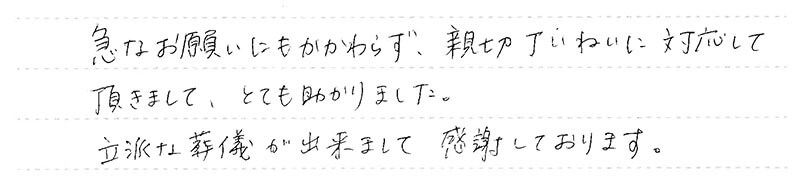 急なお願いにもかかわらず、親切ていねいに対応して
頂きまして、とても助かりました。
立派な葬儀が出来まして 感謝しております。